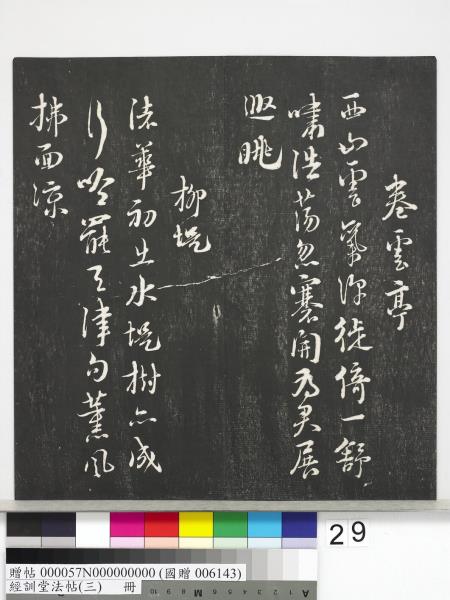 卷雲亭
西山雲氣深徙倚一舒
嘯浩蕩忽褰開為君展
遐眺
柳堤
渚華初出水堤樹亦成
行吟罷天津句薰風
拂面涼
29
贈帖 000057N000000000 (國贈 006143)
經訓堂法帖(三) 冊